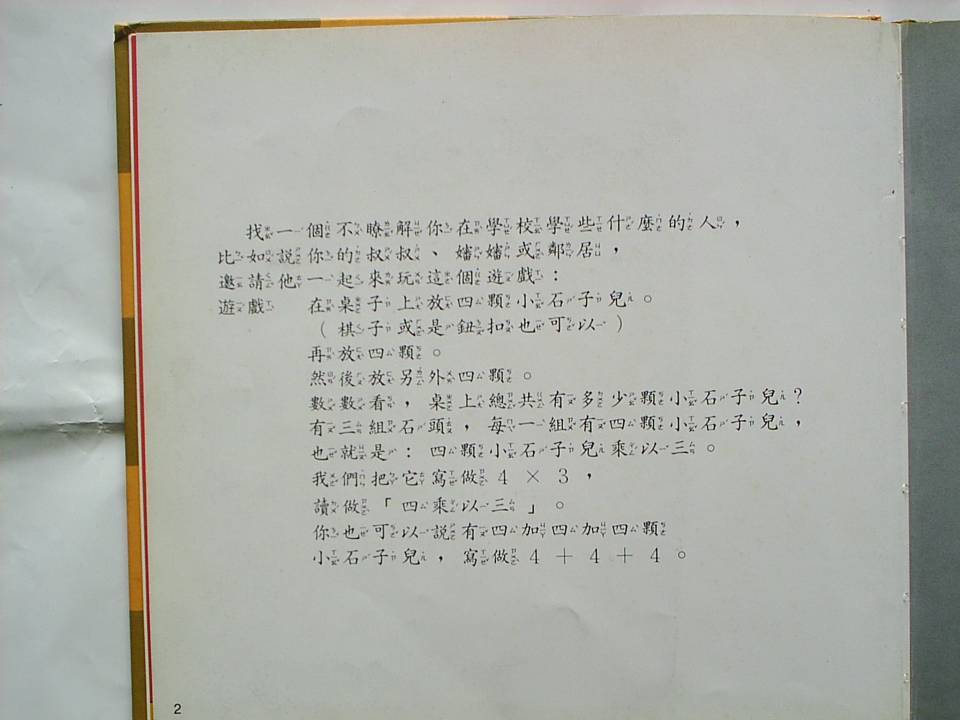 找一個不瞭解你在學校學些什麼的人，
比如說你的叔叔、嬸嬸或鄰居，
邀請他一起來玩這個遊戲：
遊戲 在桌子上放四顆小石子兒。
（棋子或是鈕扣也可以）
再放四顆。
然後放另外四顆。
數數看，桌上總共有多少顆小石子兒？
有三組石頭，每一組有四顆小石子兒，
也就是：四顆小石子兒乘以三。
我們把它寫做 4 × 3，
讀做「四乘以三」。
你也可以說有四加四加四顆
小石子兒，寫做 4 ＋ 4 ＋ 4。
2